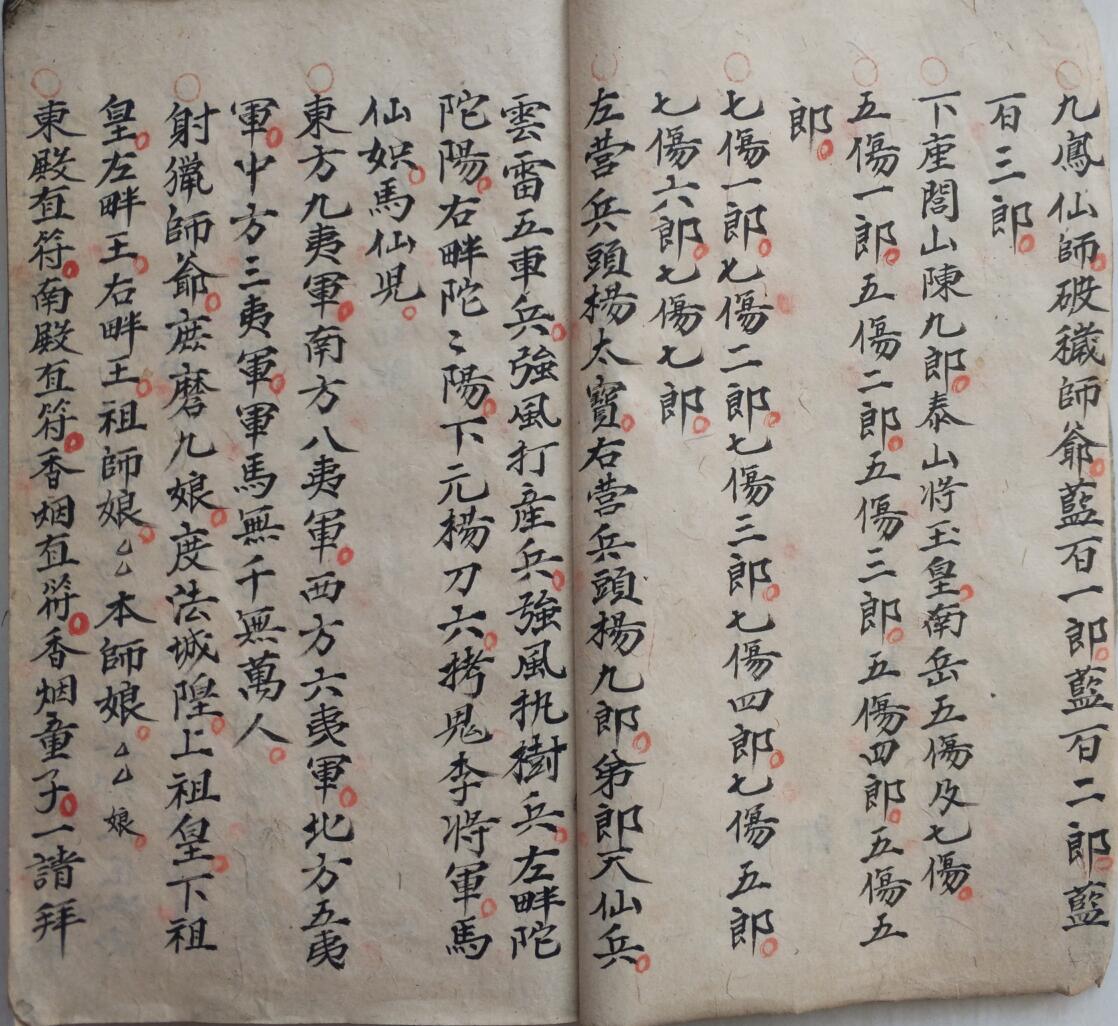 ○九鳳仙師。破穢師爺。藍百一郎。藍百二郎。藍
百三郎。
○下座閭山陳九郎。泰山將玉皇。南岳五傷及七傷。
○五傷一郎。五傷二郎。五傷三郎。五傷四郎。五傷五
郎。
○七傷一郎。七傷二郎。七傷三郎。七傷四郎。七傷五郎。
七傷六郎。七傷七郎。
○左營兵頭楊太寶。右營兵頭楊九郎。弟郎天仙兵。
雲雷五車兵。強風打産兵。強風執樹兵。左畔陀
陀陽。右畔陀〻陽。下元楊刀六。拷鬼李將軍。馬
仙娘。馬仙兒。
○東方九夷軍。南方八夷軍。西方六夷軍。北方五夷
軍。中方三夷軍。軍馬無千無萬人。
○射獵師爺。庶磨九娘。度法城隍。上祖皇。下祖
皇。左畔王。右畔王。祖師娘。〻〻本師娘。〻〻娘。
○東殿直符。南殿直符。香烟直符。香烟童子。一請拜